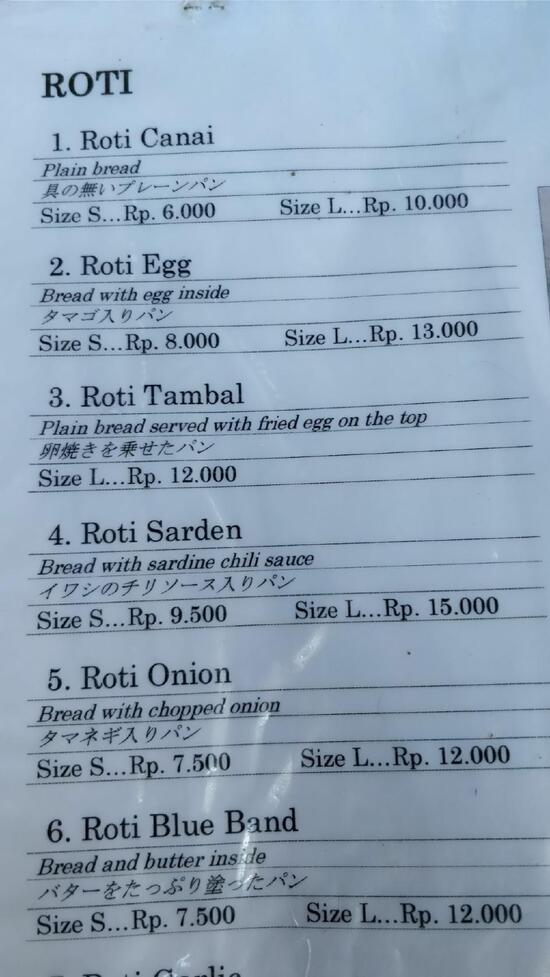 ROTI
1. Roti Canai
Plain bread
具の無いプレーンパン
Size S...Rp. 6.000 Size L...Rp. 10.000
2. Roti Egg
Bread with egg inside
タマゴ入りパン
Size S...Rp. 8.000 Size L...Rp. 13.000
3. Roti Tambal
Plain bread served with fried egg on the top
卵焼きを乗せたパン
Size L...Rp. 12.000
4. Roti Sarden
Bread with sardine chili sauce
イワシのチリソース入りパン
Size S...Rp. 9.500 Size L...Rp. 15.000
5. Roti Onion
Bread with chopped onion
タマネギ入りパン
Size S...Rp. 7.500 Size L...Rp. 12.000
6. Roti Blue Band
Bread and butter inside
バターをたっぷり塗ったパン
Size S...Rp. 7.500 Size L...Rp. 12.000
Roti Garlic